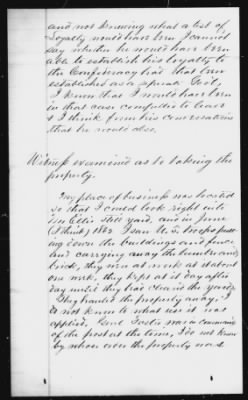 and not knowing what a test of
Loyalty would have been I cannot
say whether he would have been
able to establish his loyalty to
the Confederacy had that been
established as a separate Govt.
I know that I would have been
in that case compelled to leave
& I think from his conversations
that he would also.
Witness examined as to taking the
property.
My place of business was located
so that I could look right into
Ellis Still yard, and in June
(I think) 1862 I saw U.S. troops pull-
ing down the buildings and fence
and carrying away the lumber and
brick, they were at work at it about
one week, they kept at it day after
day until they had cleared the yard.
They hauled the property away; I
do not know to what use it was
applied. Genl was
of the post at the time, I do not know
by whose order the property was t